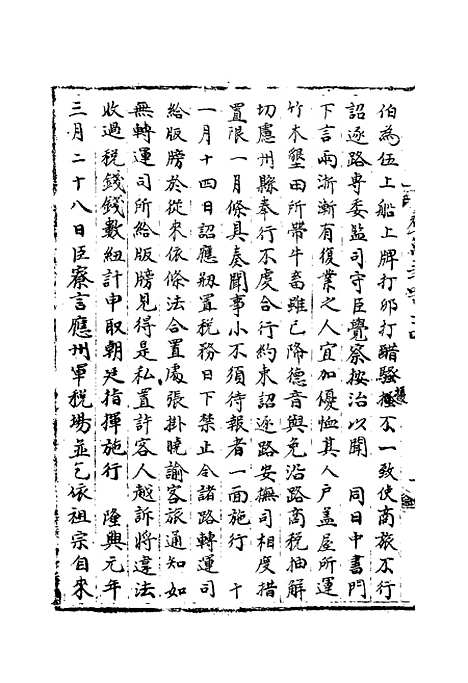 伯為伍上船上牌打卯打醋騷擾不一致使商旅不行
詔逐路専委監司守臣覺察按治以聞　同日中書門
下言兩浙漸有復業之人宜加優恤其人户盖屋所運
竹木墾田所帶牛畜雖已降德音與免沿路商税抽解
切慮州縣奉行不䖍合行約束詔逐路安撫司相度措
置限一月條具奏聞事小不須待報者一面施行　十
一月十四日詔應剏置税務日下禁止令諸路轉運司
給版牓於從來依條法合置處張掛曉諭客旅通知如
無轉運司所給版牓見得是私置許客人越訴將違法
收過税錢錢數紐計申取朝廷指揮施行　隆興元年
三月二十八日臣寮言應州軍税場並乞依祖宗自來